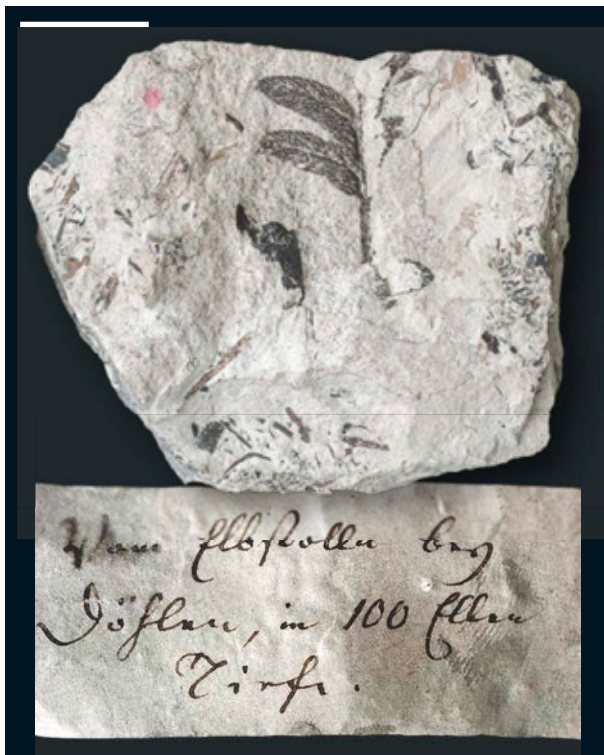 Vom Elbstolln bey
Döhlen, in 100 Ellen
Tiefe.